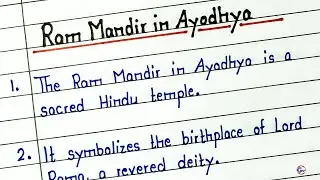 Ram Mandir in Ayodhya
1. The Ram Mandir in Ayodhya is a
sacred Hindu temple.
2. It symbolizes the birthplace of Lord
Rama, a revered deity.